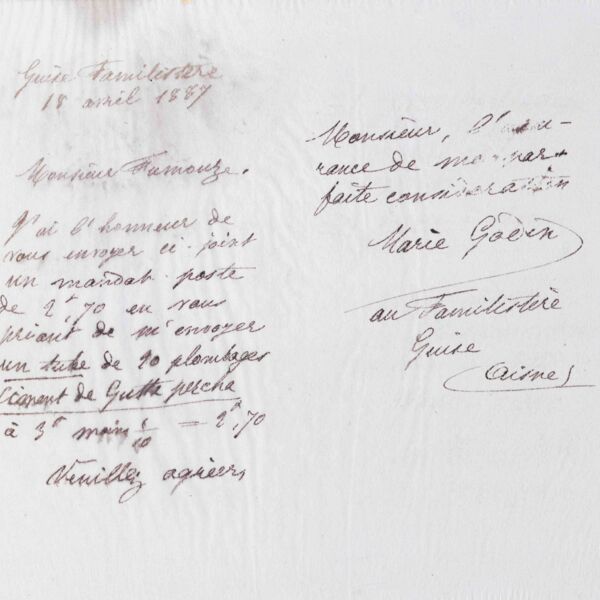 Guise Familistère
18 avril 1887
Monsieur Fumouze,
J'ai l'honneur de
vous envoyer ci-joint
un mandat-poste
de 2f,70 en vous
priant de m'envoyer
un tube de 20 plombages
Ciment de Gutta percha
à 3f moins 1/10 = 2f,70
Veuillez agréer,
Monsieur, l'assu-
rance de ma par-
faite considération
Marie Godin
au Familistère
Guise
(Aisne)